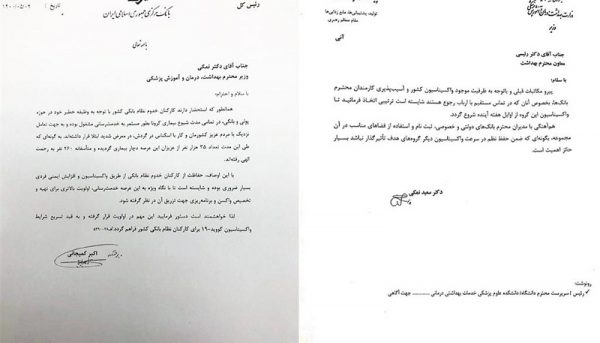 رئیس کل
بانک مرکزی جمهوری اسلامی ایران
تاریخ
بسمه تعالی
جناب آقای دکتر نمکی
وزیر محترم بهداشت، درمان و آموزش پزشکی
با سلام و احترام؛
همانطور که استحضار دارند کارکنان خدوم نظام بانکی کشور با توجه به وظیفه خطیر خود در حوزه
پولی و بانکی، در تمامی مدت شیوع بیماری کرونا بطور مستمر به خدمت‌رسانی مشغول بوده و به جهت تعامل
نزدیک با مردم عزیز کشورمان و کار با اسکناس در گردش، در معرض شدید ابتلا قرار داشته‌اند. به گونه‌ای که
در این مدت تعداد ۲۵ هزار نفر از عزیزان این عرصه دچار بیماری گردیده و متأسفانه ۲۶۰ نفر به رحمت
الهی رفته‌اند.
با این اوصاف، حفاظت از کارکنان خدوم نظام بانکی از طریق واکسیناسیون و افزایش ایمنی فردی
بسیار ضروری بوده و شایسته است تا با نگاه ویژه به این عرصه خدمت‌رسانی، اولویت بالاتری برای تهیه و
تخصیص واکسن و برنامه‌ریزی جهت تزریق آنان در نظر گرفته شود.
لذا خواهشمند است دستور فرمایید این مهم در اولویت قرار گرفته و به قید تسریع شرایط
واکسیناسیون کووید-۱۹ برای کارکنان نظام بانکی کشور فراهم گردد.
اکبر کمیجانی
وزارت بهداشت، درمان و آموزش پزشکی
وزیر
تولید، پشتیبانی‌ها، مانع زدایی‌ها
مقام معظم رهبری
آنی
جناب آقای دکتر رئیسی
معاون محترم بهداشت
با سلام؛
پیرو مکاتبات قبلی و باتوجه به ظرفیت موجود واکسیناسیون کشور و آسیب‌پذیری کارمندان محترم
بانک‌ها، بخصوص آنان که در تماس مستقیم با ارباب رجوع هستند شایسته است ترتیبی اتخاذ فرمائید تا
واکسیناسیون این گروه از اوایل هفته آینده شروع گردد.
هماهنگی با مدیران محترم بانک‌های دولتی و خصوصی، ثبت نام و استفاده از فضاهای مناسب در آن
مجموعه، بگونه‌ای که ضمن حفظ نظم در سرعت واکسیناسیون دیگر گروه‌های هدف تأثیر‌گذار نباشد بسیار
حائز اهمیت است.
دکتر سعید نمکی
رونوشت:
✓ رئیس / سرپرست محترم دانشگاه/ دانشکده علوم پزشکی خدمات بهداشتی درمانی ........... جهت آگاهی